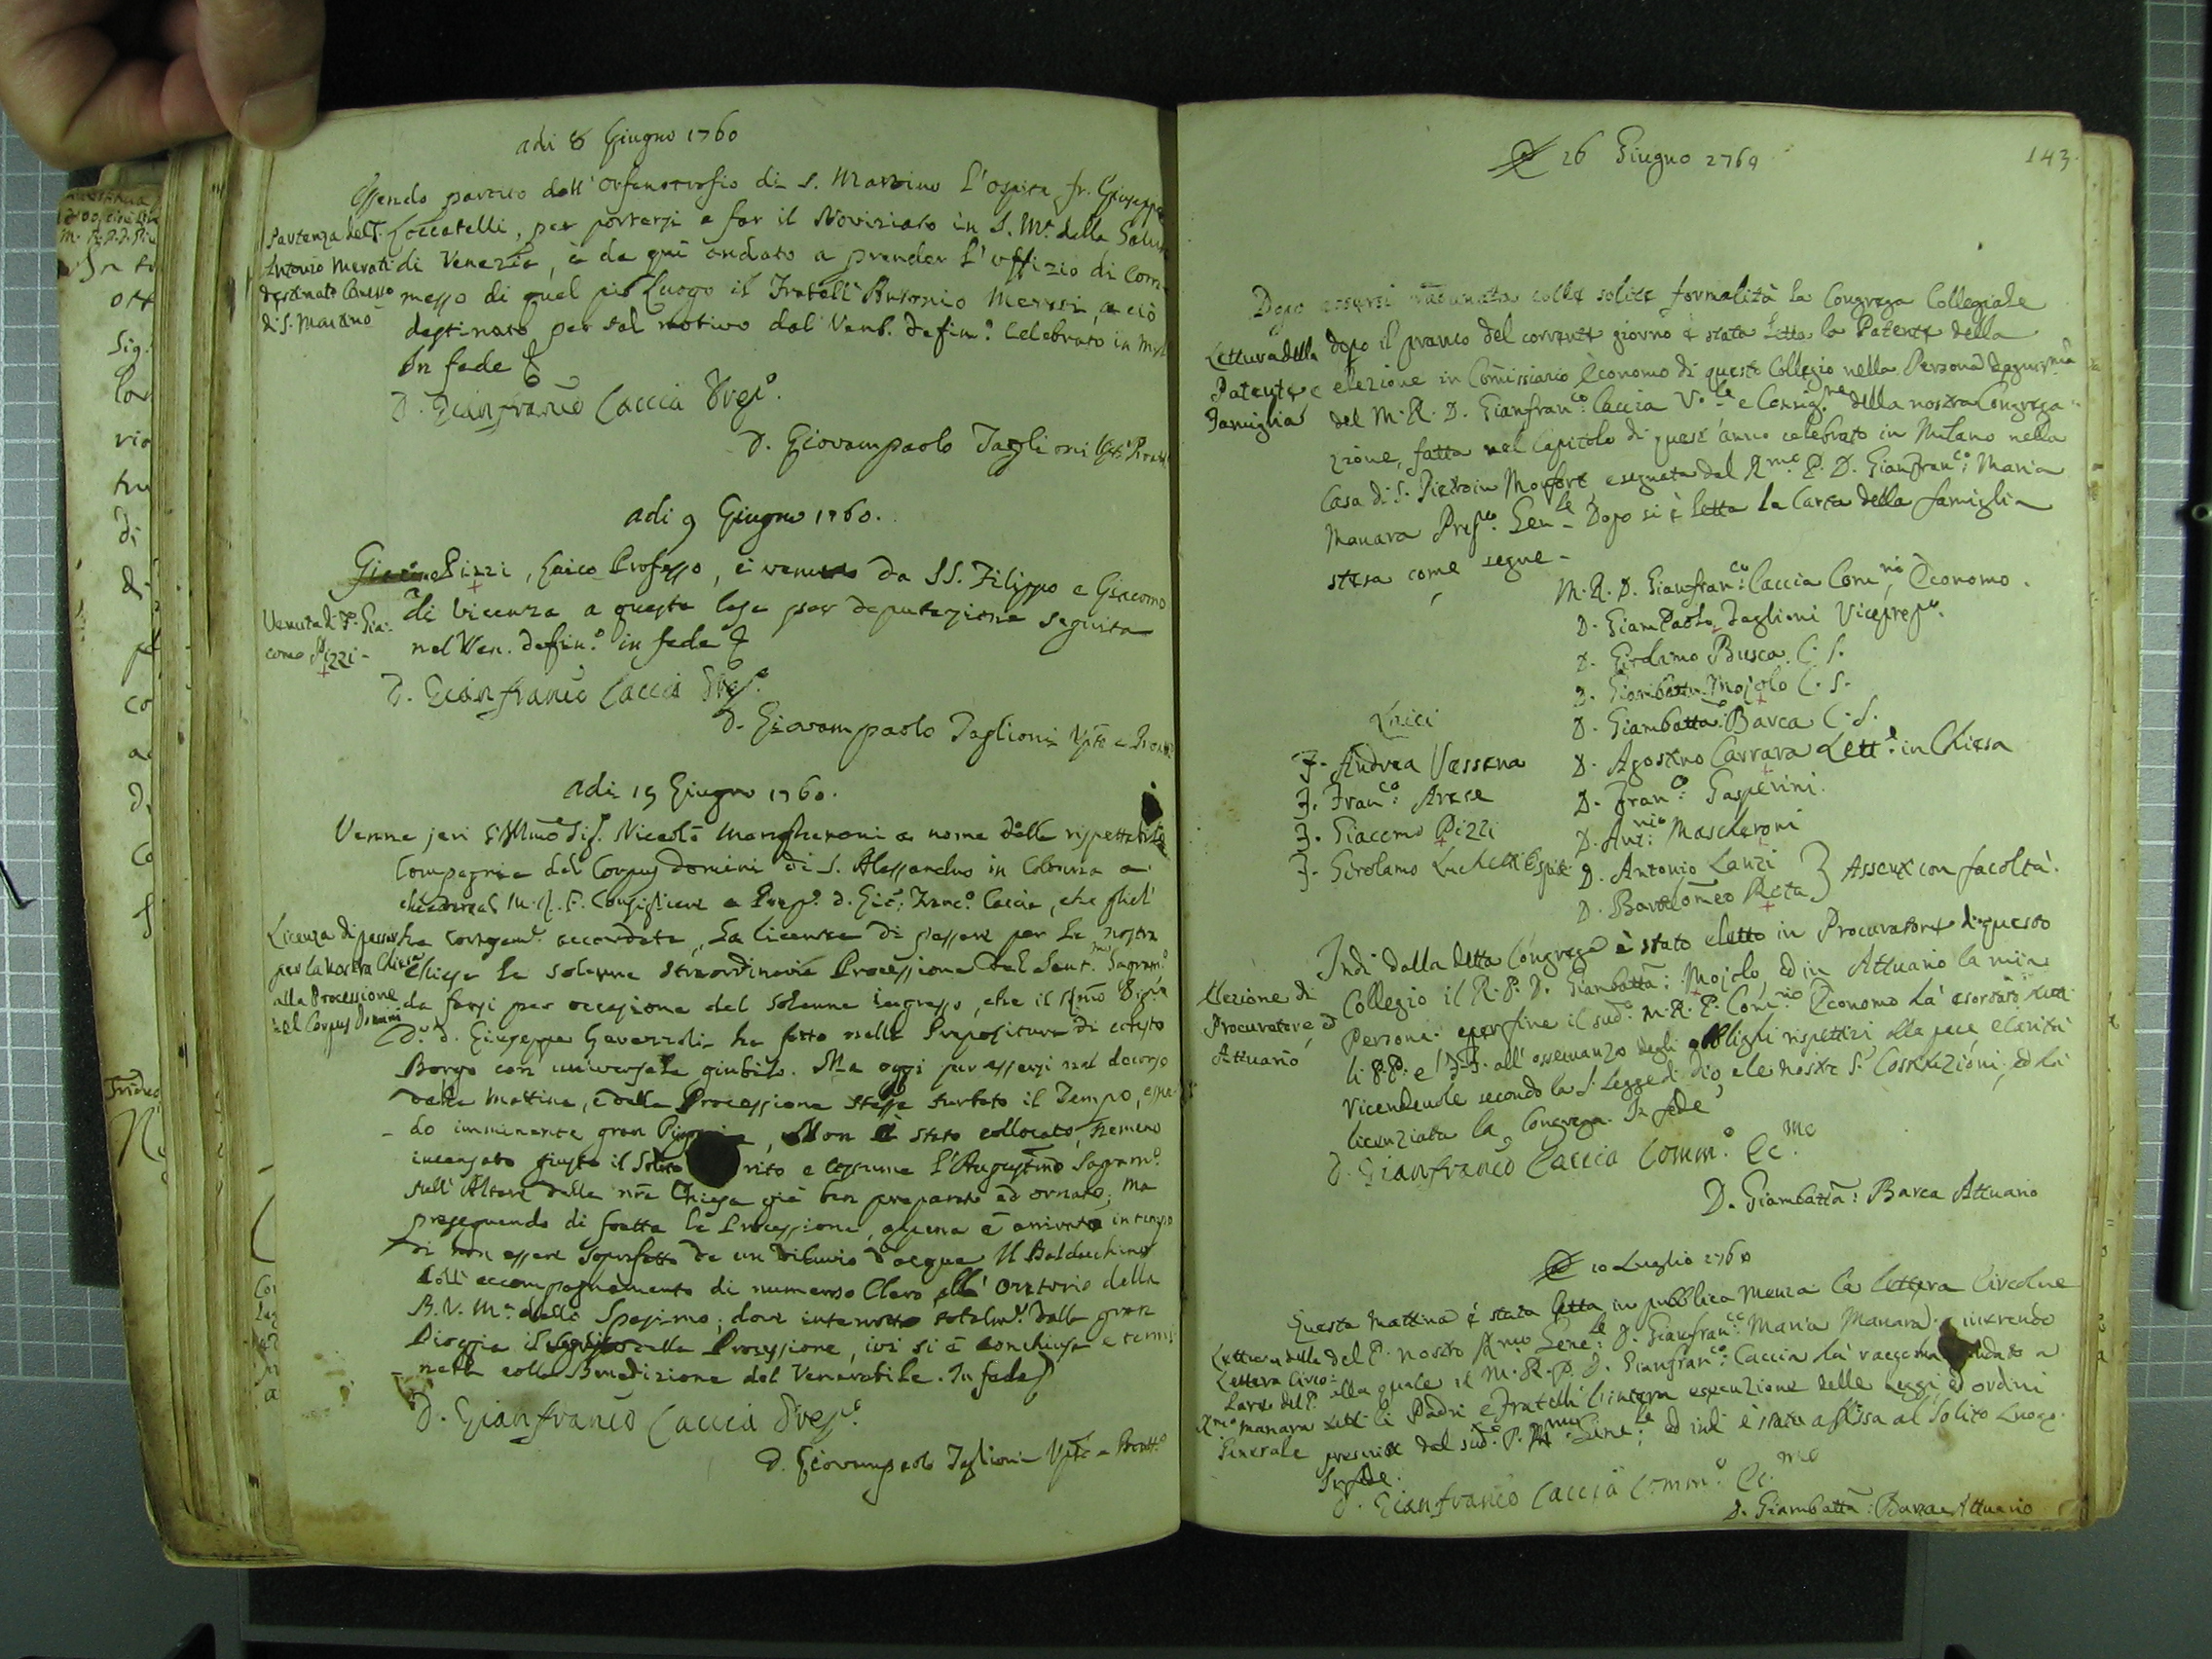 adi 8 Giugno 1760
Essendo partito dall'Orfanotrofio di S. Martino l'ospite fr. Giuseppe
Partenza del F. Loccatelli, per portarsi a far il Noviziato in S. Mª della Salute
Antonio Merati di Venezia, è da qui andato a prender l'uffizio di Com-
destinato Comesso messo di quel pio Luogo il Fratell' Antonio Merati, a ciò
di S. Martino destinato per tal motivo dal Venb. Defin.º celebrato in
In fede
D. Gianfranco Caccia Prep.º
D. Giovampaolo Taglioni
adi 9 Giugno 1760.
Pizzi, Laico Professo, è venuto da SS. Filippo e Giacomo
Venuta di F. Gia- di Vicenza a questa Casa per deputazione seguita
como Pizzi - nel Ven. Defin.º in fede
D. Gianfranco Caccia Prep.º
D. Giovampaolo Taglioni
adi 15 Giugno 1760.
Venne jeri l'Illmo Sig. Niccolò Mangheroni a nome della rispettabile
Compagnia del Corpus Domini di S. Alessandro in Colonna a
chiedere al M. R. P. Consigliere e Prep.º D. Gio: Franc.º Caccia, che gliel'
Licenza di passar ha accordata, la licenza di passare per la nostra
per la nostra Chiesa Chiesa la solenne straordinaria Processione del Sant.mo Sagram.º
alla Processione da farsi per occasione del solenne ingresso, che il Rmo Sig.r
del Corpus Domini D. Giuseppe Gavazzoli ha fatto nella Prepositura di cotesto
Borgo con universale giubilo. Ma oggi per essersi nel decorso
della mattina, e della Processione stessa turbato il Tempo, essen-
do imminente gran Pioggia, Non è stato collocato, nemeno
incensato giusto il solito rito e costume l'Augustmo Sagram.º
sull'Altare della nra Chiesa già ben preparato ed ornato; ma
proseguendo di fretta la Processione, appena è arrivata in tempo
di non essere soprafatto da un diluvio d'acque Il Baldacchino
coll'accompagnamento di numeroso Clero, all'Oratorio della
B. V. Mª dello Spasimo; dove interrotto totalm.e dalla gran
Pioggia il seguito della Processione, ivi si è conchiusa e termi-
nata colla Benedizione del Venerabile. In fede
D. Gianfranco Caccia Prep.º
D. Giovampaolo Taglioni
143.
26 Giugno 1760
Dopo essersi radunata colle solite formalità la Congrega Collegiale
Lettura della dopo il pranzo del corrente giorno è stata letta la Patente della
Patente e elezione in Comissario Economo di questo Collegio nella Persona
Famiglia del M. R. D. Gianfran.co Caccia V.le e Consig.re della nostra Congrega-
zione, fatta nel Capitolo di quest'anno celebrato in Milano nella
Casa di S. Pietro in Monforte e segnata dal Rmo P. D. Gianfran.co Maria
Manara Prep.to Gen.le Dopo si è letta la Carta della famiglia
stesa come segue -
M. R. D. Gianfran.co Caccia Com.rio Economo.
D. GiamPaolo Taglioni Viceprep.to
D. Girolamo Busca C. S.
D. Giambatta. Mojolo C. S.
Laici
D. Giambatta: Barca C. S.
F. Andrea Vassena
D. Agostino Carrara Lett.e in Chiesa
F. Fran.co Arese
D. Fran.co Gasperini.
F. Giacomo Pizzi
D. Ant.nio Mascheroni
F. Girolamo Luchetti Ospite
D. Antonio Lanzi
D. Bartolomeo Rota } Assenti con facoltà.
Indi dalla detta Congrega è stato eletto in Procuratore di questo
Elezione di Collegio il R. P. D. Giambatta: Mojolo, ed in Attuario la mia
Procuratore, ed Persona. e per fine il sud.º M. R. P. Com.rio Economo ha esortato tutti
Attuario li PP. e FF. all'osservanza degli obblighi rispettivi alla pace, e carità
vicendevole secondo la S. Legge di Dio, e le nostre S. Costituzioni, ed ha
licenziata la Congrega. In fede
D. Gianfranco Caccia Comm.º Ec.mo
D. Giambatta: Barca Attuario
10 Luglio 1760
Questa mattina è stata letta in pubblica Mensa la lettera Circolare
Lettura della del P. nostro Rmo Gene.le D. Gianfran.co Maria Manara, inerendo
Lettera Circo- alla quale il M. R. P. D. Gianfran.co Caccia ha
lare del P. Rmo Manara tutti li Padri e Fratelli l'intera esecuzione delle Leggi, ed ordini
Generale prescritti dal sud.º P. Rmo Gene.le, ed indi è stata affissa al solito Luogo.
In fede.
D. Gianfranco Caccia Comm.º Ec.mo
D. Giambatta: Barca Attuario